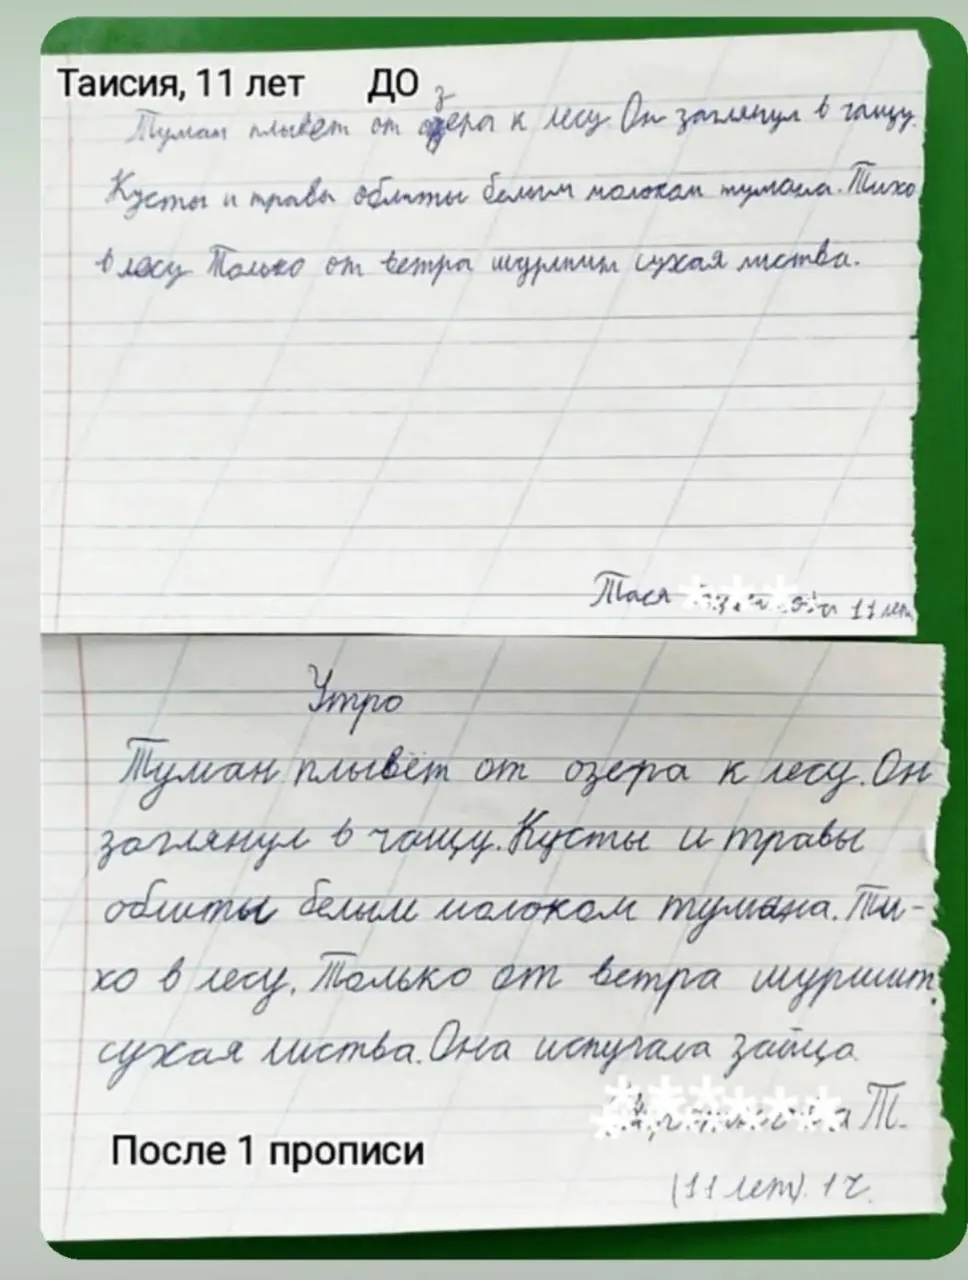 Таисия, 11 лет ДО
з
Туман плывет от озера к лесу. Он заглянул в чащу.
Кусты и травы облиты белым молокам тумана. Тихо
в лесу Только от ветра шуршит сухая листва.
Тася 11 лет
Утро
Туман плывёт от озера к лесу. Он
заглянул в чащу. Кусты и травы
облиты белым молоком тумана. Ти-
хо в лесу. Только от ветра шуршит
сухая листва. Она испугала зайца
Т.
После 1 прописи
(11 лет) 1 ч.